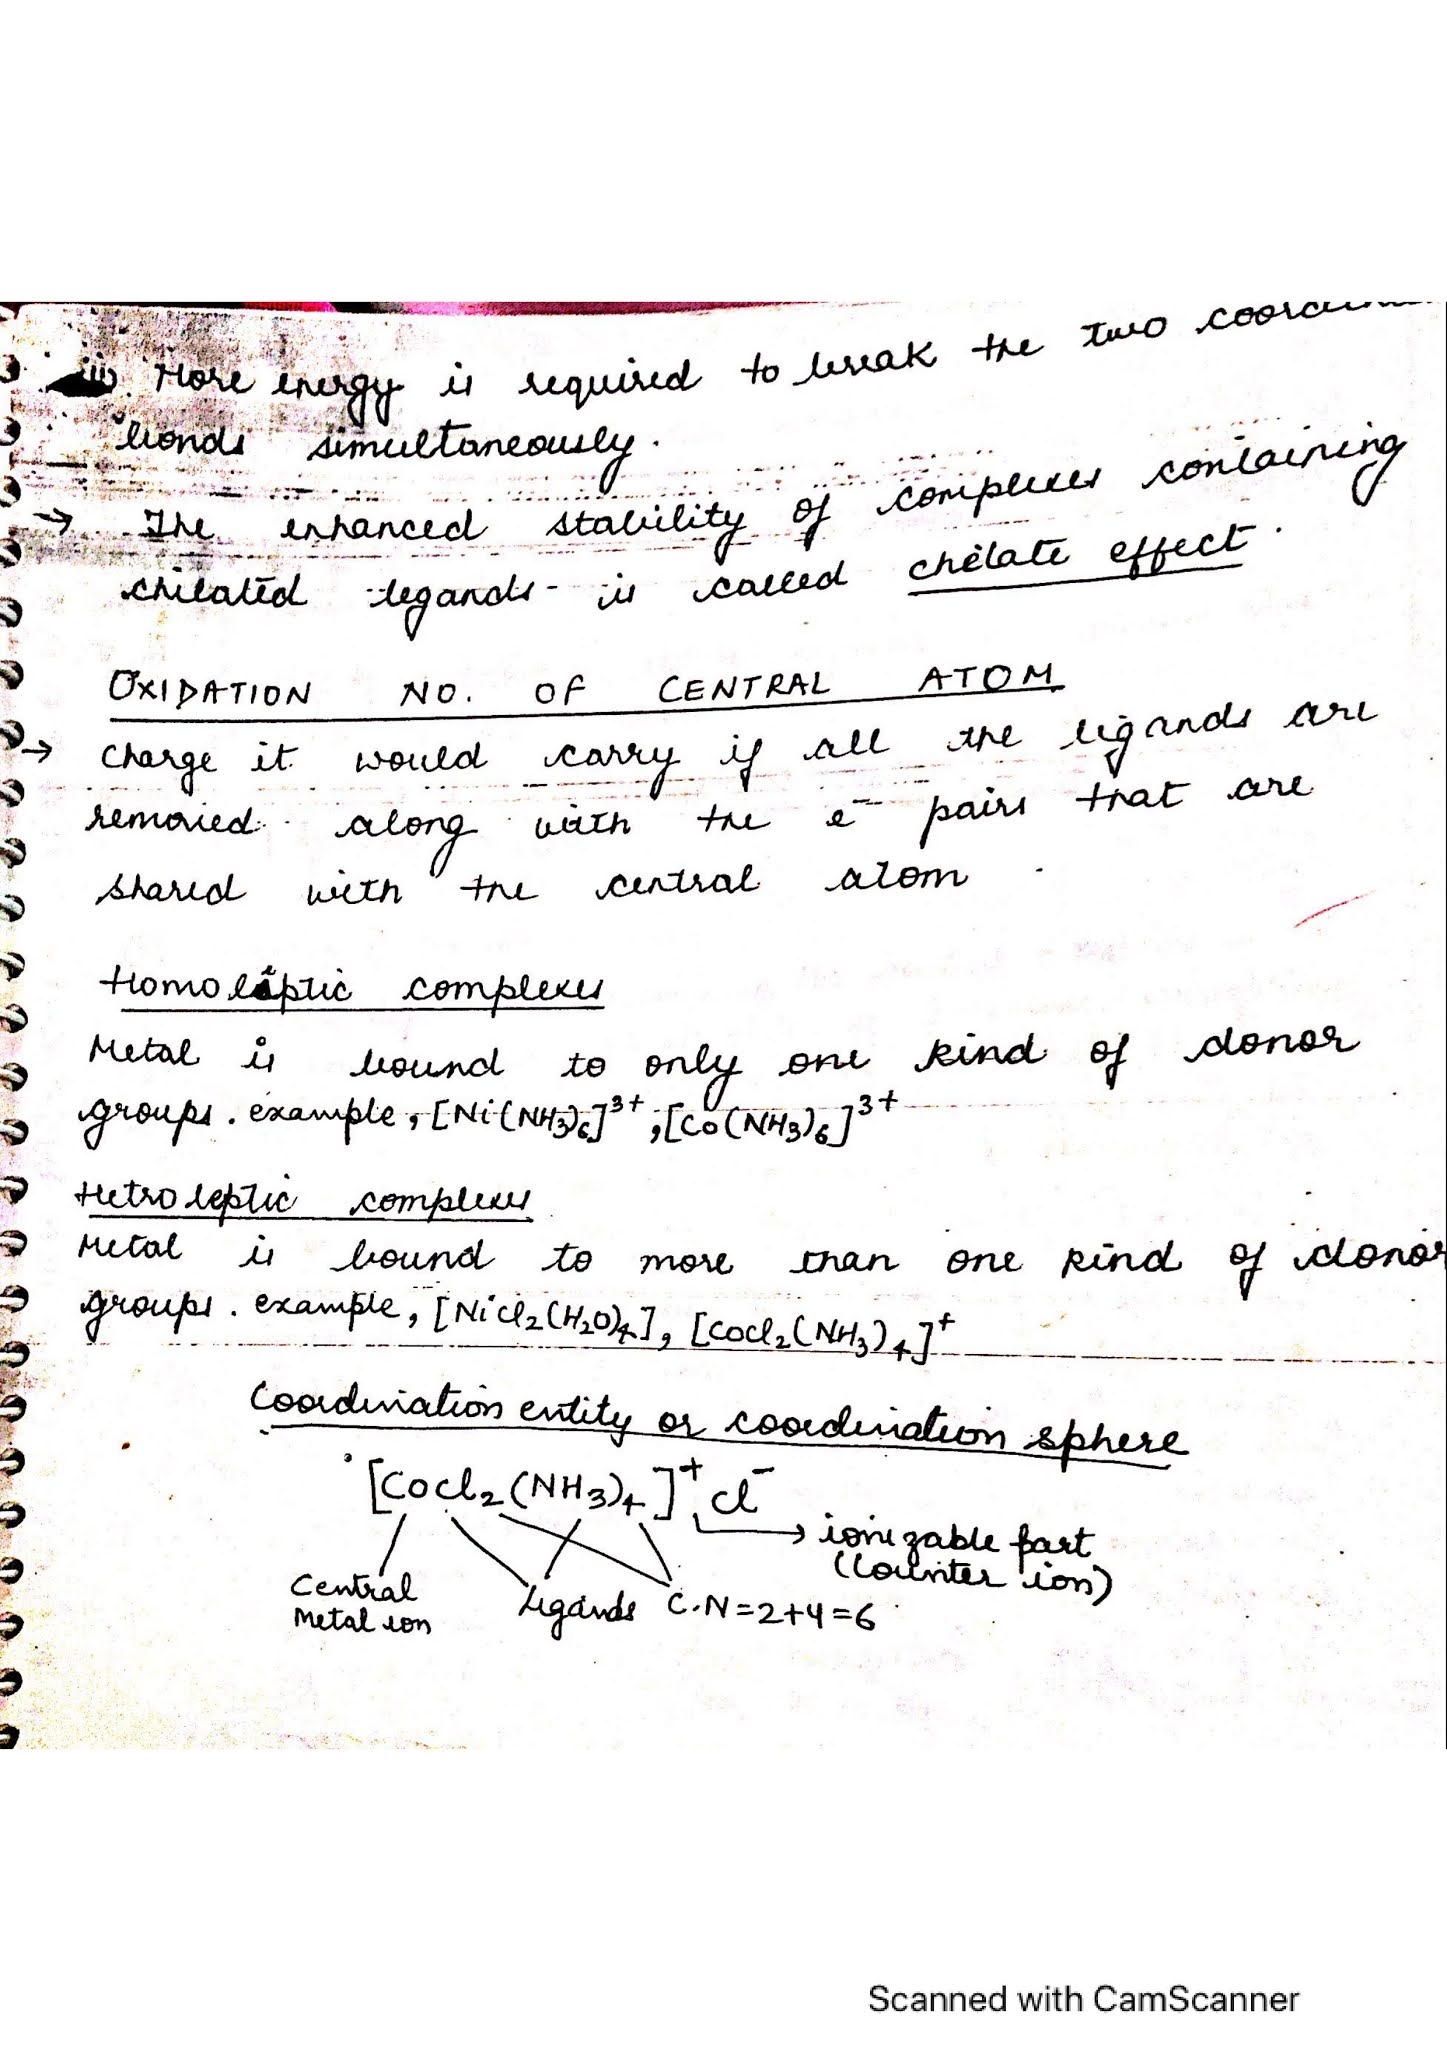 iii) More energy is required to break the two
bonds simultaneously.
→ The enhanced stability of complexes containing
chelated ligands is called chelate effect.
OXIDATION NO. OF CENTRAL ATOM
→ Charge it would carry if all the ligands are
removed along with the e⁻ pairs that are
shared with the central atom.
Homoleptic complexes
Metal is bound to only one kind of donor
groups. example, [Ni(NH₃)₆]³⁺, [Co(NH₃)₆]³⁺
Hetroleptic complexes
Metal is bound to more than one kind of donor
groups. example, [NiCl₂(H₂O)₄], [CoCl₂(NH₃)₄]⁺
Coordination entity or coordination sphere
[CoCl₂(NH₃)₄]⁺ Cl⁻
→ ionizable part
(Counter ion)
Central
Metal ion
Ligands
C.N = 2+4 = 6
Scanned with CamScanner